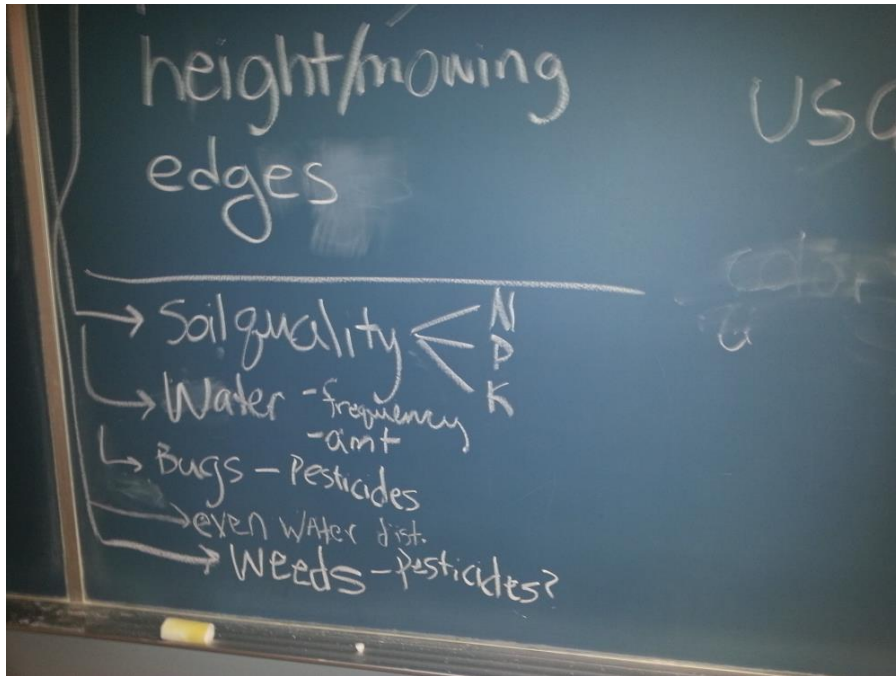 height/mowing
edges
Soil quality
N
P
K
Water - frequency
- amt
Bugs - Pesticides
even water dist.
Weeds - Pesticides?